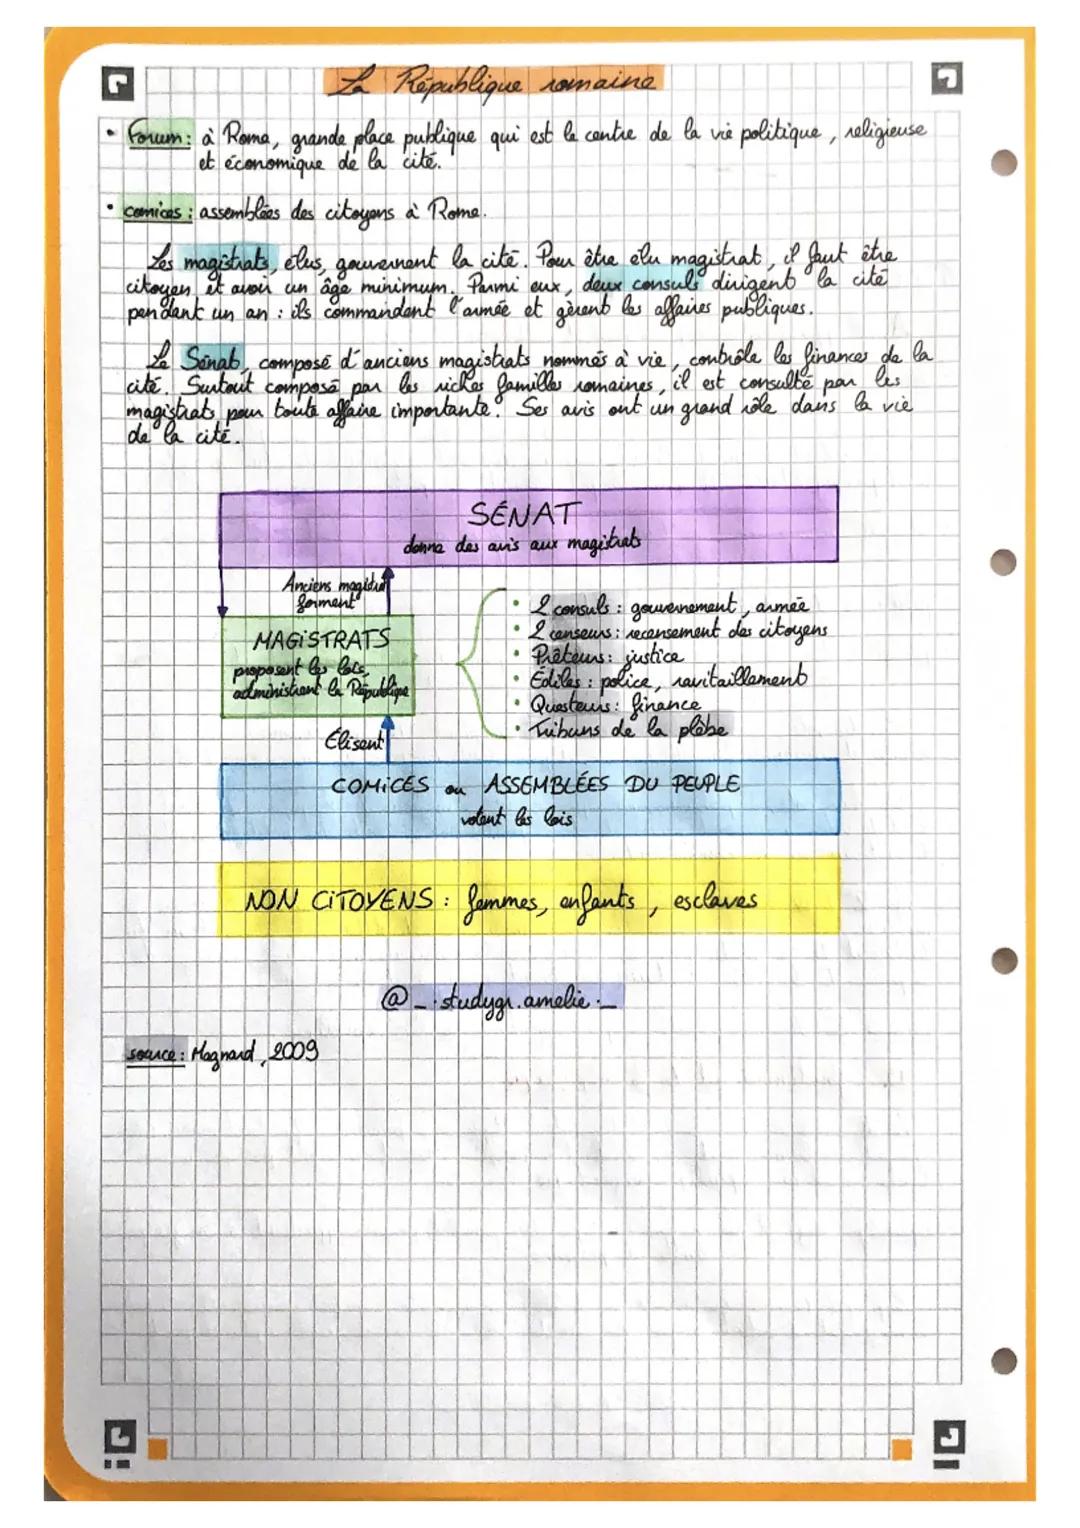 La République romaine
• Forum : à Rome, grande place publique qui est le centre de la vie politique, religieuse
et économique de la cité.
• comices : assemblées des citoyens à Rome.
Les magistrats, élus, gouvernent la cité. Pour être élu magistrat, il faut être
citoyen et avoir un âge minimum. Parmi eux, deux consuls dirigent la cité
pendant un an : ils commandent l'armée et gèrent les affaires publiques.
Le Sénat, composé d'anciens magistrats nommés à vie, contrôle les finances de la
cité. Surtout composé par les riches familles romaines, il est consulté par les
magistrats pour toute affaire importante. Ses avis ont un grand rôle dans la vie
de la cité.
SÉNAT
donne des avis aux magistrats
Anciens magistrat
forment
MAGISTRATS
proposent les lois,
administrent la République
• 2 consuls : gouvernement, armée
• 2 censeurs : recensement des citoyens
• Prêteurs : justice
• Édiles : police, ravitaillement
• Questeurs : finance
• Tribuns de la plèbe
Élisent
COMICES ou ASSEMBLÉES DU PEUPLE
votent les lois
NON CITOYENS : femmes, enfants, esclaves
@_.studygr.amelie._
source : Magnard, 2009